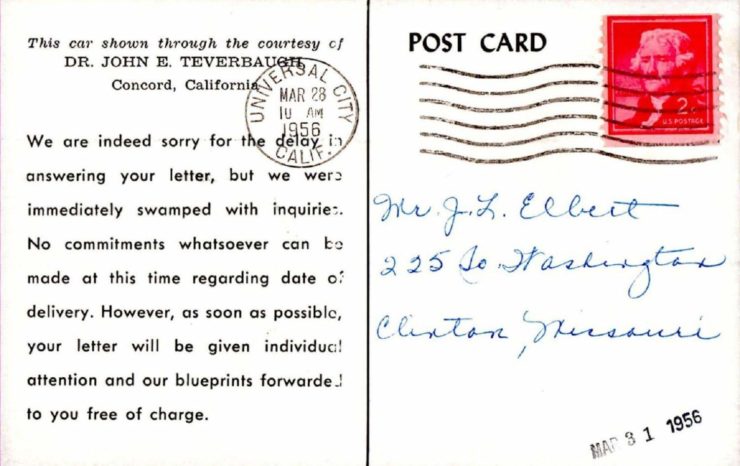 This car shown through the courtesy of
DR. JOHN E. TEVERBAUGH
Concord, California
We are indeed sorry for the delay in
answering your letter, but we were
immediately swamped with inquiries.
No commitments whatsoever can be
made at this time regarding date of
delivery. However, as soon as possible,
your letter will be given individual
attention and our blueprints forwarded
to you free of charge.
UNIVERSAL CITY
MAR 28
10 AM
1956
CALIF.
POST CARD
2¢
U.S. POSTAGE
Mr. J. L. Elbert
225 So. Washington
Clinton, Missouri
MAR 31 1956